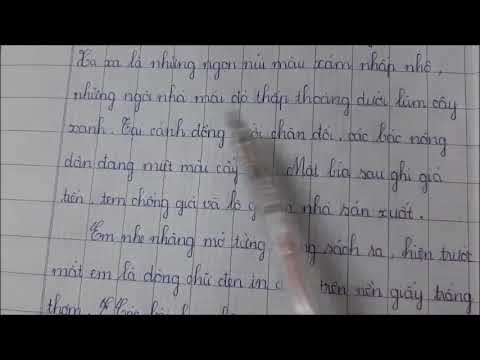 Xa xa là những ngọn núi màu xám nhấp nhô,
những ngôi nhà mái đỏ thấp thoáng dưới lùm cây
xanh. Tại cánh đồng chân đồi, các bác nông
dân đang miệt mài cấy Mặt bìa sau ghi giá
tiền, tem chống giả và lô nhà sản xuất.
Em nhẹ nhàng mở từng sách ra, hiện trước
mắt em là dòng chữ đen in trên nền giấy trắng
thơm.